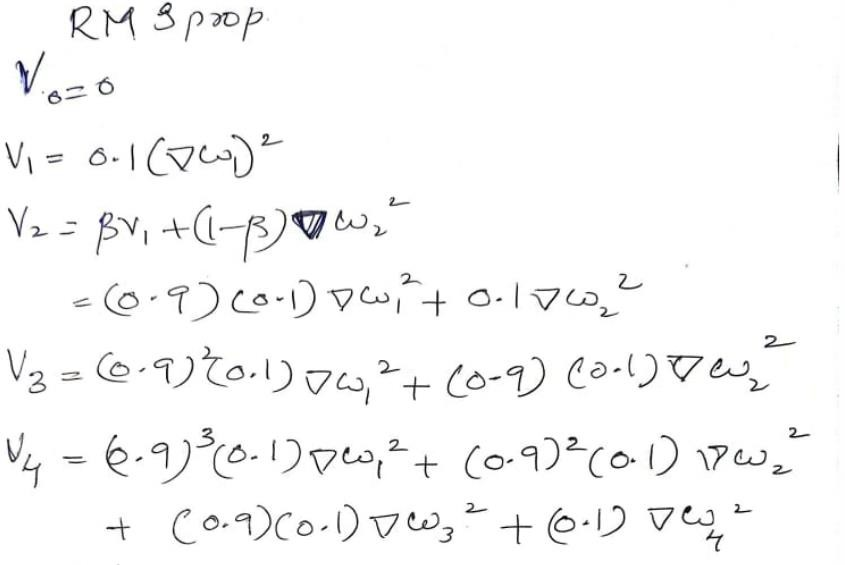 RMSprop
V₀ = 0
V₁ = 0.1(∇ω₁)²
V₂ = βV₁ + (1-β)∇ω₂²
= (0.9)(0.1)∇ω₁² + 0.1∇ω₂²
V₃ = (0.9)²(0.1)∇ω₁² + (0.9)(0.1)∇ω₂²
V₄ = (0.9)³(0.1)∇ω₁² + (0.9)²(0.1)∇ω₂²
+ (0.9)(0.1)∇ω₃² + (0.1)∇ω₄²